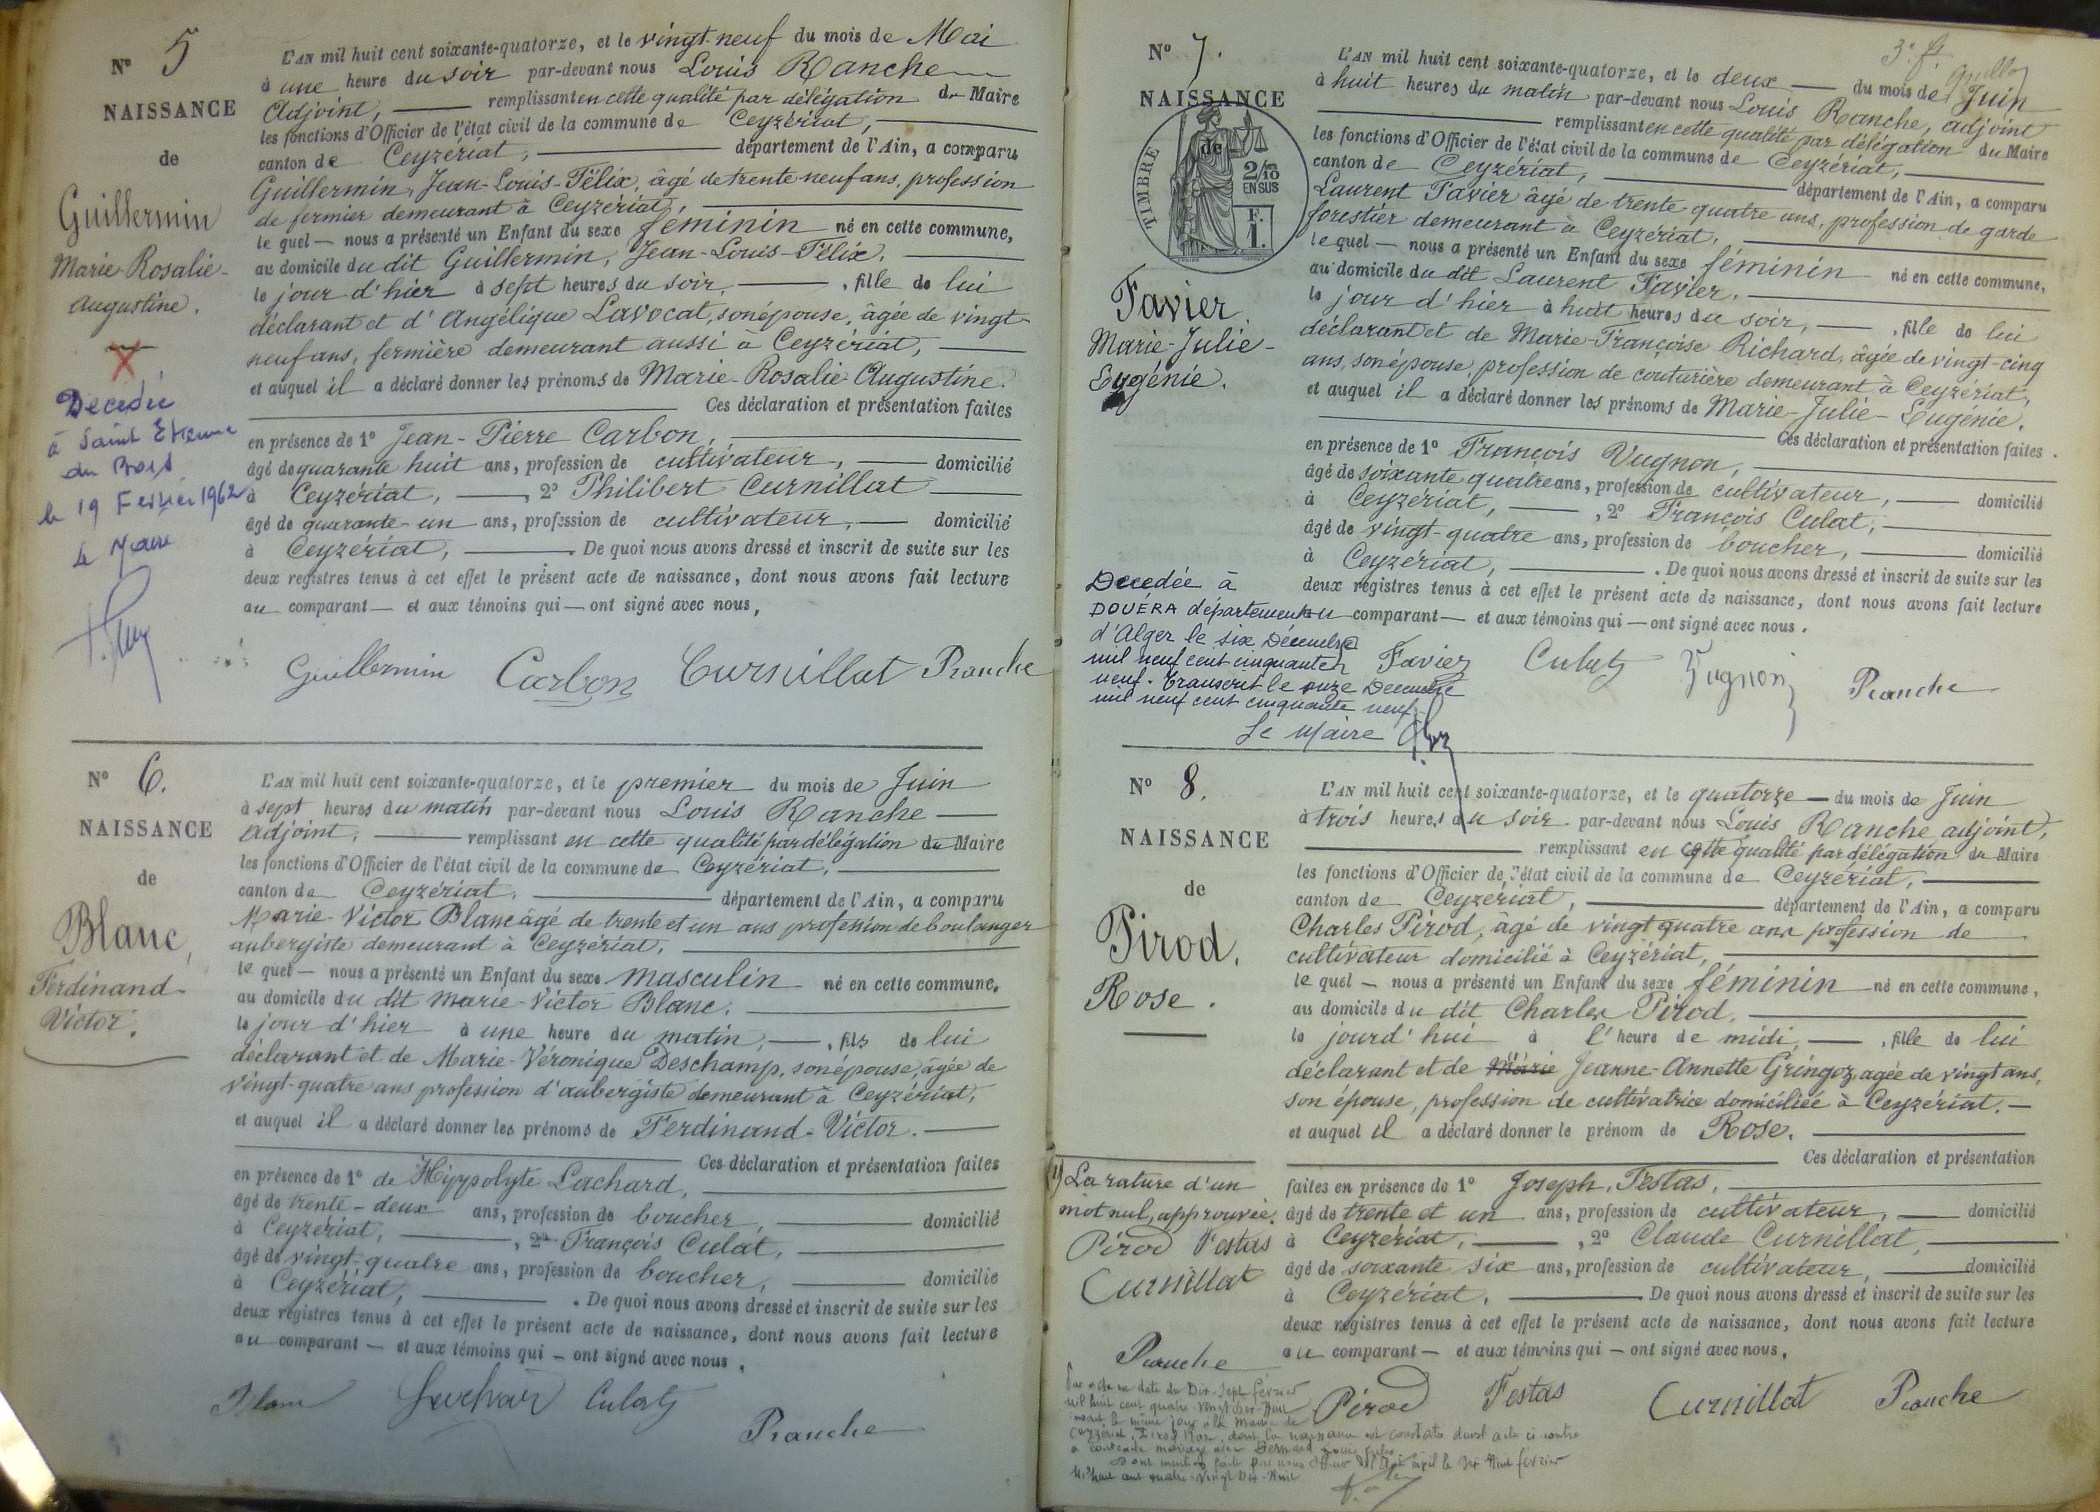 N° 5
NAISSANCE
de
Guillermin
Marie-Rosalie-
Augustine.
X
Decedée
à Saint Etienne
du Bois
le 19 Fevrier 1962
Le Maire
L'AN mil huit cent soixante-quatorze, et le vingt-neuf du mois de Mai
à une heure du soir par-devant nous Louis Ranche
Adjoint, remplissant en cette qualité par délégation du Maire
les fonctions d'Officier de l'état civil de la commune de Ceyzériat,
canton de Ceyzériat, département de l'Ain, a comparu
Guillermin, Jean-Louis-Félix, âgé de trente-neuf ans, profession
de fermier demeurant à Ceyzériat,
le quel — nous a présenté un Enfant du sexe féminin né en cette commune,
au domicile du dit Guillermin, Jean-Louis-Félix,
le jour d'hier à sept heures du soir, , fille de lui
déclarant et d'Angélique Lavocat, son épouse, âgée de vingt-
neuf ans, fermière demeurant aussi à Ceyzériat,
et auquel il a déclaré donner les prénoms de Marie-Rosalie-Augustine.
Ces déclaration et présentation faites
en présence de 1° Jean-Pierre Carbon,
âgé de quarante huit ans, profession de cultivateur, domicilié
à Ceyzériat, , 2° Philibert Curnillat
âgé de quarante-un ans, profession de cultivateur, domicilié
à Ceyzériat, . De quoi nous avons dressé et inscrit de suite sur les
deux registres tenus à cet effet le présent acte de naissance, dont nous avons fait lecture
au comparant — et aux témoins qui — ont signé avec nous,
Guillermin Carbon Curnillat Ranche
N° 6.
NAISSANCE
de
Blanc,
Ferdinand-
Victor.
L'AN mil huit cent soixante-quatorze, et le premier du mois de Juin
à sept heures du matin par-devant nous Louis Ranche
adjoint, remplissant en cette qualité par délégation du Maire
les fonctions d'Officier de l'état civil de la commune de Ceyzériat,
canton de Ceyzériat, département de l'Ain, a comparu
Marie-Victor Blanc âgé de trente et un ans profession de boulanger
aubergiste demeurant à Ceyzériat,
le quel — nous a présenté un Enfant du sexe masculin né en cette commune,
au domicile du dit Marie-Victor Blanc,
le jour d'hier à une heure du matin, — , fils de lui
déclarant et de Marie-Véronique Deschamp, son épouse, âgée de
vingt-quatre ans profession d'aubergiste demeurant à Ceyzériat,
et auquel il a déclaré donner les prénoms de Ferdinand-Victor.
Ces déclaration et présentation faites
en présence de 1° de Hyppolyte Lachard,
âgé de trente-deux ans, profession de boucher, domicilié
à Ceyzériat, , 2° François Culat,
âgé de vingt-quatre ans, profession de boucher, domicilié
à Ceyzériat, . De quoi nous avons dressé et inscrit de suite sur les
deux registres tenus à cet effet le présent acte de naissance, dont nous avons fait lecture
au comparant — et aux témoins qui — ont signé avec nous,
Blanc Culat
Ranche
3e f.
N° 7.
NAISSANCE
de
TIMBRE
2/10
EN SUS
F.
1.
Favier
Marie-Julie-
Eugénie.
Decedée à
DOUÉRA departement
d'Alger le six Décembre
mil neuf cent cinquante
neuf. Transcrit le onze Decembre
mil neuf cent cinquante neuf.
Le Maire
L'AN mil huit cent soixante-quatorze, et le deux — du mois de Juin
à huit heures du matin par-devant nous Louis Ranche, adjoint
remplissant en cette qualité par délégation du Maire
les fonctions d'Officier de l'état civil de la commune de Ceyzériat,
canton de Ceyzériat, département de l'Ain, a comparu
Laurent Favier âgé de trente-quatre ans, profession de garde
forestier demeurant à Ceyzériat,
le quel — nous a présenté un Enfant du sexe féminin né en cette commune,
au domicile du dit Laurent Favier,
le jour d'hier à huit heures du soir, — , fille de lui
déclarant et de Marie-Françoise Richard, âgée de vingt-cinq
ans, son épouse, profession de couturière demeurant à Ceyzériat,
et auquel il a déclaré donner les prénoms de Marie-Julie-Eugénie.
Ces déclaration et présentation faites
en présence de 1° François Vugnon,
âgé de soixante quatre ans, profession de cultivateur, domicilié
à Ceyzériat, — , 2° François Culat,
âgé de vingt-quatre ans, profession de boucher, domicilié
à Ceyzériat, . De quoi nous avons dressé et inscrit de suite sur les
deux registres tenus à cet effet le présent acte de naissance, dont nous avons fait lecture
au comparant — et aux témoins qui — ont signé avec nous.
Favier Culat Vugnon Ranche
N° 8.
NAISSANCE
de
Pirod,
Rose.
(1) La rature d'un
mot nul, approuvée.
Pirod Festas
Curnillat
Ranche
L'AN mil huit cent soixante-quatorze, et le quatorze — du mois de Juin
à trois heures du soir par-devant nous Louis Ranche adjoint,
remplissant en cette qualité par délégation du Maire
les fonctions d'Officier de l'état civil de la commune de Ceyzériat,
canton de Ceyzériat, département de l'Ain, a comparu
Charles Pirod, âgé de vingt quatre ans profession de
cultivateur domicilié à Ceyzériat,
le quel — nous a présenté un Enfant du sexe féminin né en cette commune,
au domicile du dit Charles Pirod,
le jourd'hui à l'heure de midi, — , fille de lui
déclarant et de Marie Jeanne-Annette Gringoz agée de vingt ans,
son épouse, profession de cultivatrice domiciliée à Ceyzériat. —
et auquel il a déclaré donner le prénom de Rose.
Ces déclaration et présentation
faites en présence de 1° Joseph, Festas,
âgé de trente et un ans, profession de cultivateur, domicilié
à Ceyzériat, , 2° Claude Curnillat,
âgé de soixante six ans, profession de cultivateur, domicilié
à Ceyzériat, De quoi nous avons dressé et inscrit de suite sur les
deux registres tenus à cet effet le présent acte de naissance, dont nous avons fait lecture
au comparant — et aux témoins qui — ont signé avec nous,
Pirod Festas Curnillat Ranche